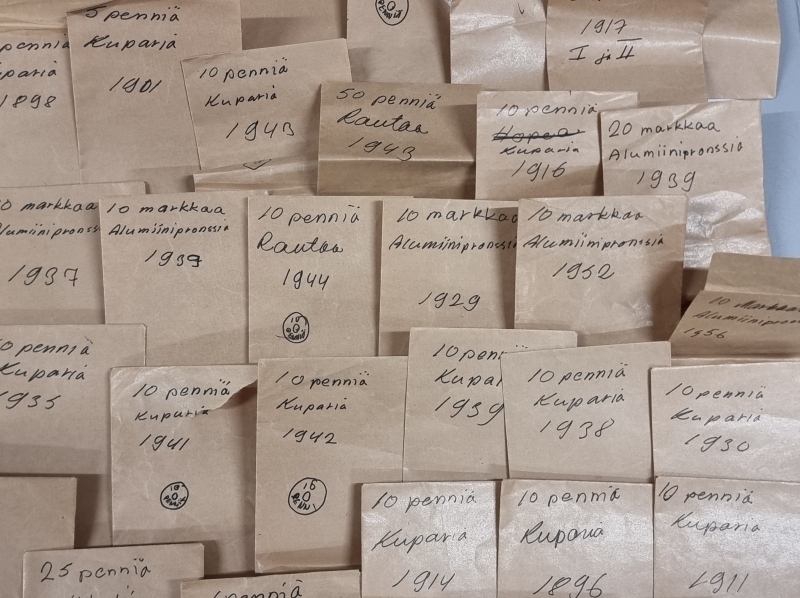 penniä
paria
1898
5 penniä
Kuparia
1901
10 penniä
Kuparia
1943
0
PENNIÄ
50 penniä
Rautaa
1943
1917
I ja II
10 penniä
Hopea
Kuparia
1916
20 markkaa
Alumiinipronssia
1939
10 markkaa
Alumiinipronss
1937
10 markkaa
Alumiinipronssia
1939
10 penniä
Rautaa
1944
10
0
PENNIÄ
10 markkaa
Alumiinipronssi
1929
10 markkaa
Alumiinipronssia
1952
10 Markkaa
Alumiinipron
1956
10 penniä
Kuparia
1935
10 penniä
Kuparia
1941
10
0
PENNIÄ
10 penniä
Kuparia
1942
10
0
PENNI
10 penn
Kupar
1939
10 penniä
Kuparia
1938
10 penniä
Kuparia
1930
10 penniä
Kuparia
1914
10 penniä
Kuparia
1896
10 penniä
Kuparia
1911
25 penniä
1 penniä